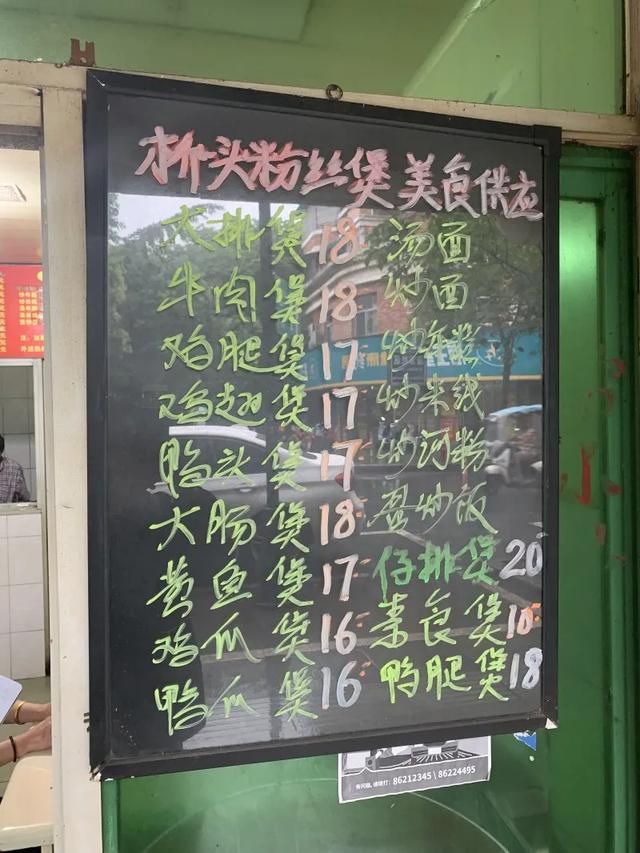 桥头粉丝煲美食供应
大排煲 18 汤面
牛肉煲 18 炒面
鸡腿煲 17 炒年糕
鸡翅煲 17 炒米线
鸭头煲 17 炒河粉
大肠煲 18 炒饭
黄鱼煲 17 仔排煲 20
鸡爪煲 16 素食煲 10
鸭爪煲 16 鸭腿煲 18
86212345 | 86224495